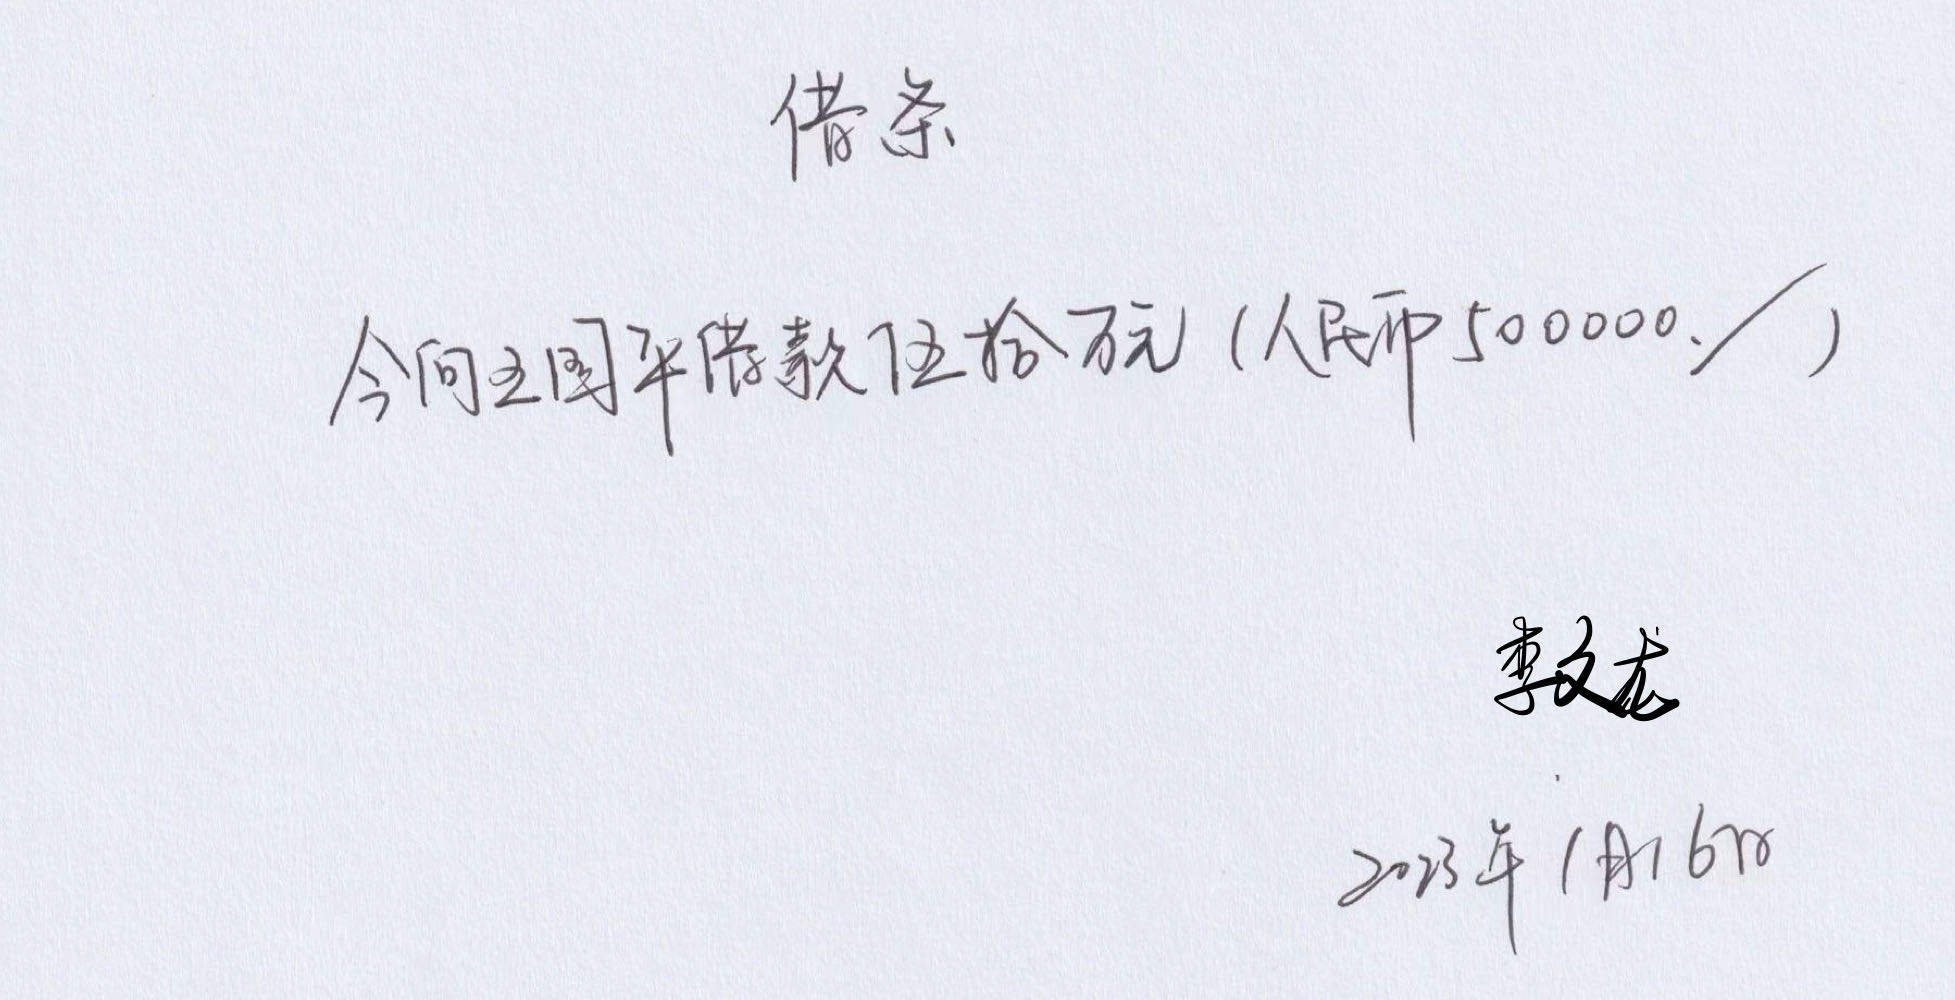 借条
今向王国平借款伍拾万元(人民币500000./)
李文龙
2023年1月16日